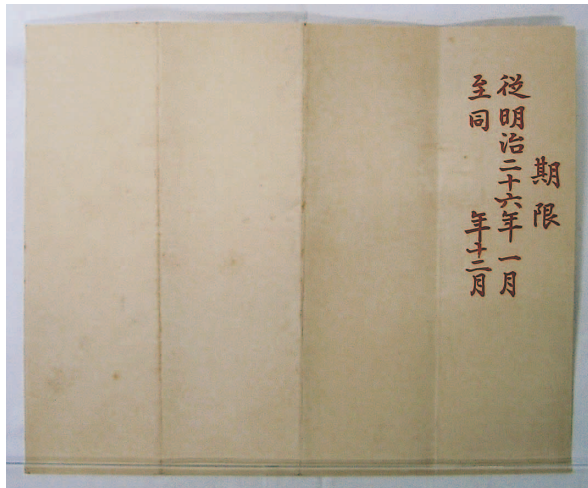 期限
従明治二十六年一月
至同 年十二月